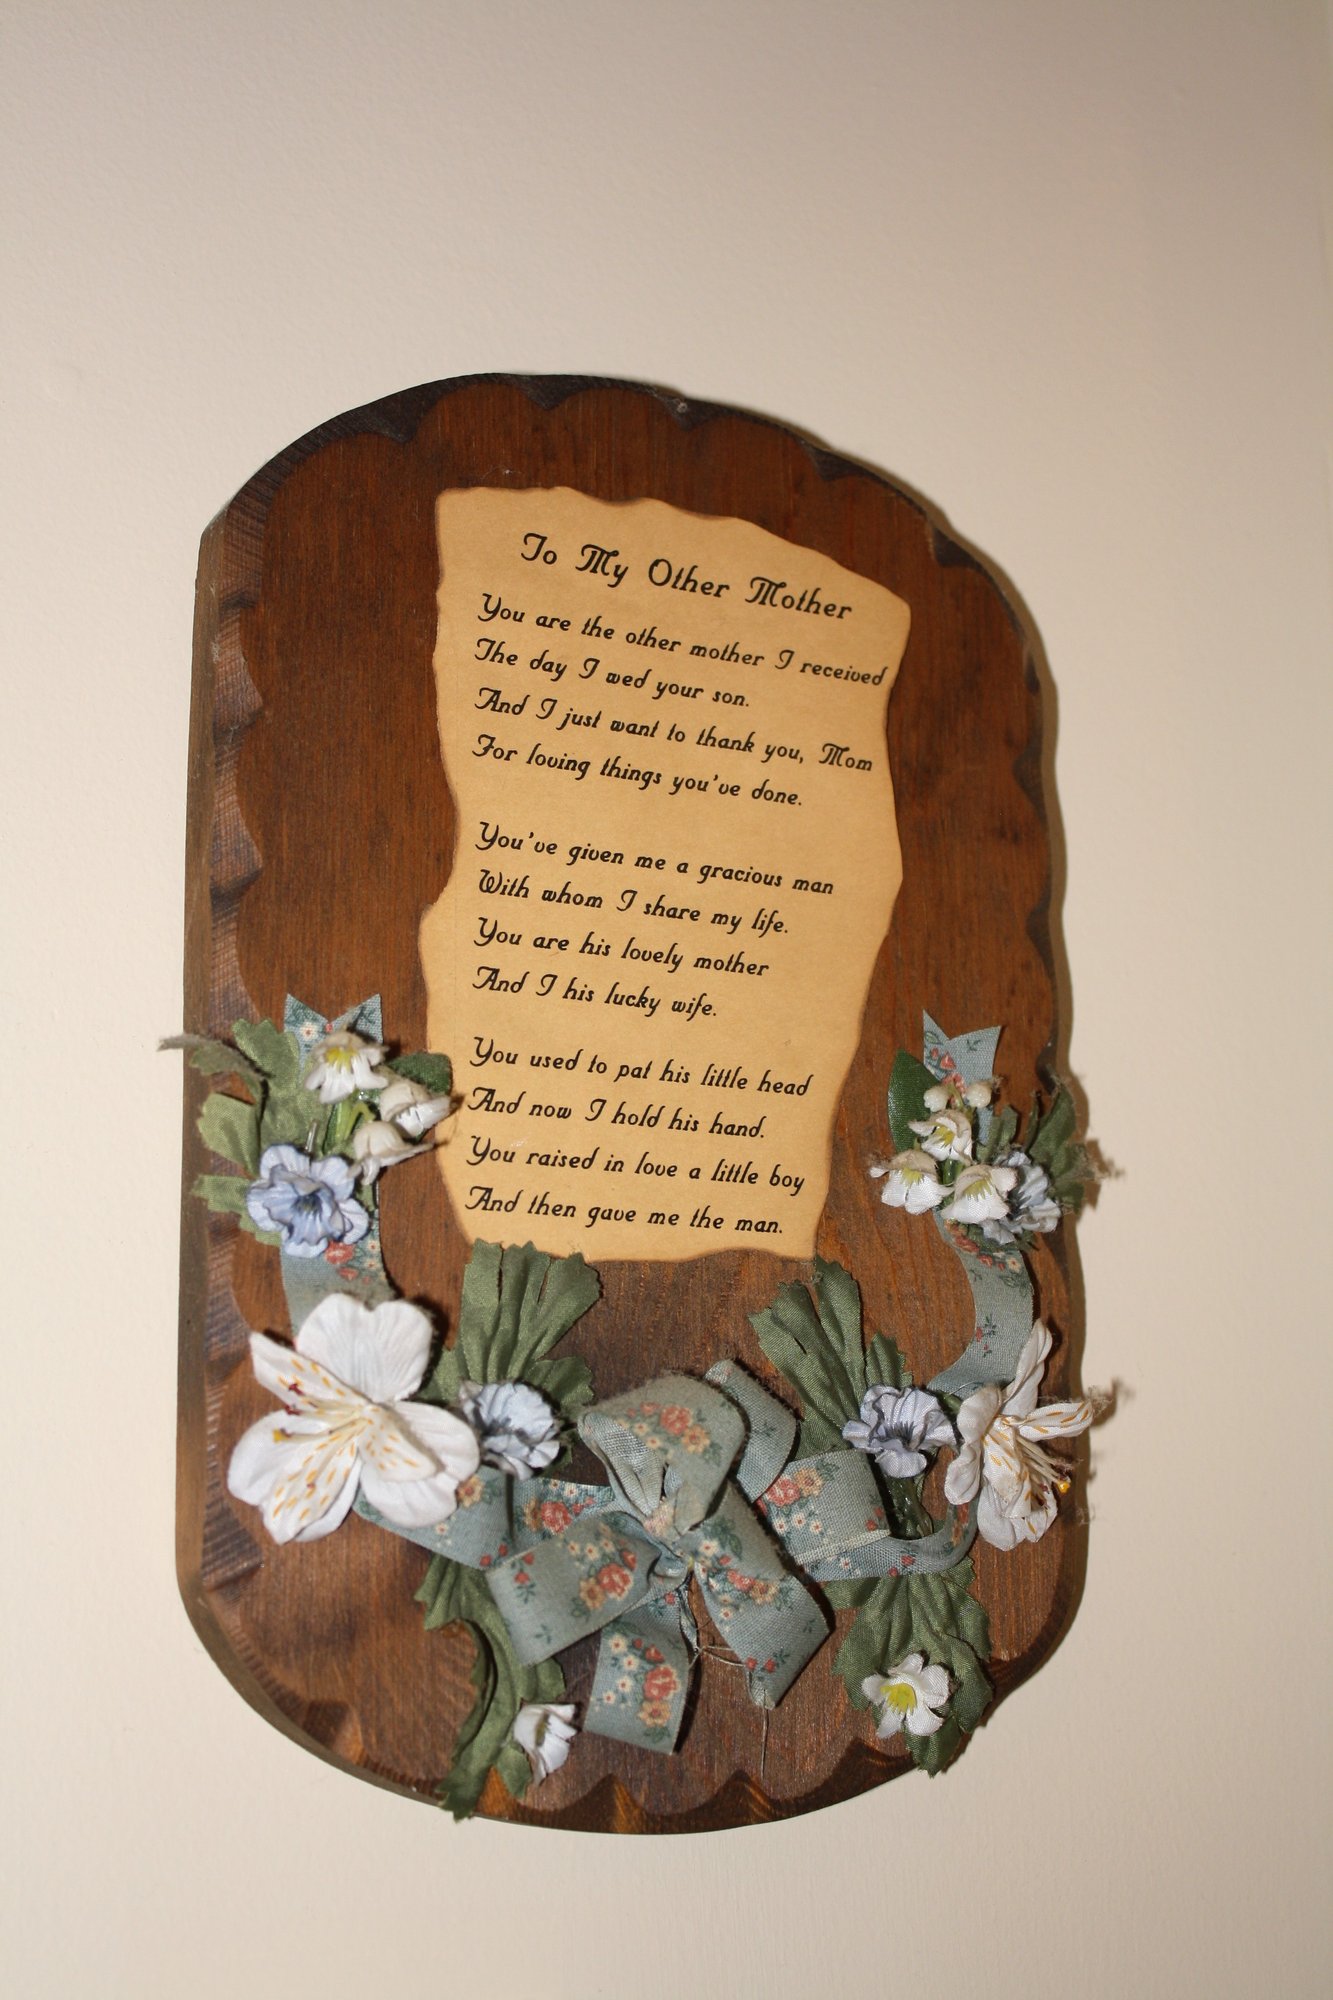 To My Other Mother
You are the other mother I received
The day I wed your son.
And I just want to thank you, Mom
For loving things you've done.
You've given me a gracious man
With whom I share my life.
You are his lovely mother
And I his lucky wife.
You used to pat his little head
And now I hold his hand.
You raised in love a little boy
And then gave me the man.